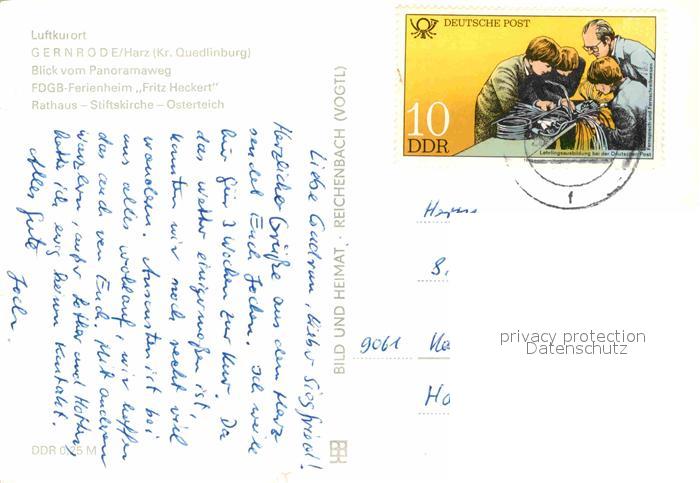 Luftkurort
GERNRODE/Harz (Kr. Quedlinburg)
Blick vom Panoramaweg
FDGB-Ferienheim „Fritz Heckert"
Rathaus – Stiftskirche – Osterteich
DDR 0,25 M
BILD UND HEIMAT, REICHENBACH (VOGTL)
DEUTSCHE POST
10
DDR
Lehrlingsausbildung bei der Deutschen Post
Fernsprech- und Fernschreibwesen
f
Liebe Gudrun, lieber Siegfried!
Herzliche Grüße aus dem Harz
sendet Euch Jochen. Ich weile
hier für 3 Wochen zur Kur. Da
das Wetter einigermaßen ist,
konnten wir noch recht viel
wandern. Ansonsten ist bei
uns alles wohlauf, wir hoffen
das auch von Euch. Mit anderen
, außer Lothar und
hatte ich ewig keinen Kontakt.
Alles Gute
Joch.
9061
privacy protection
Datenschutz